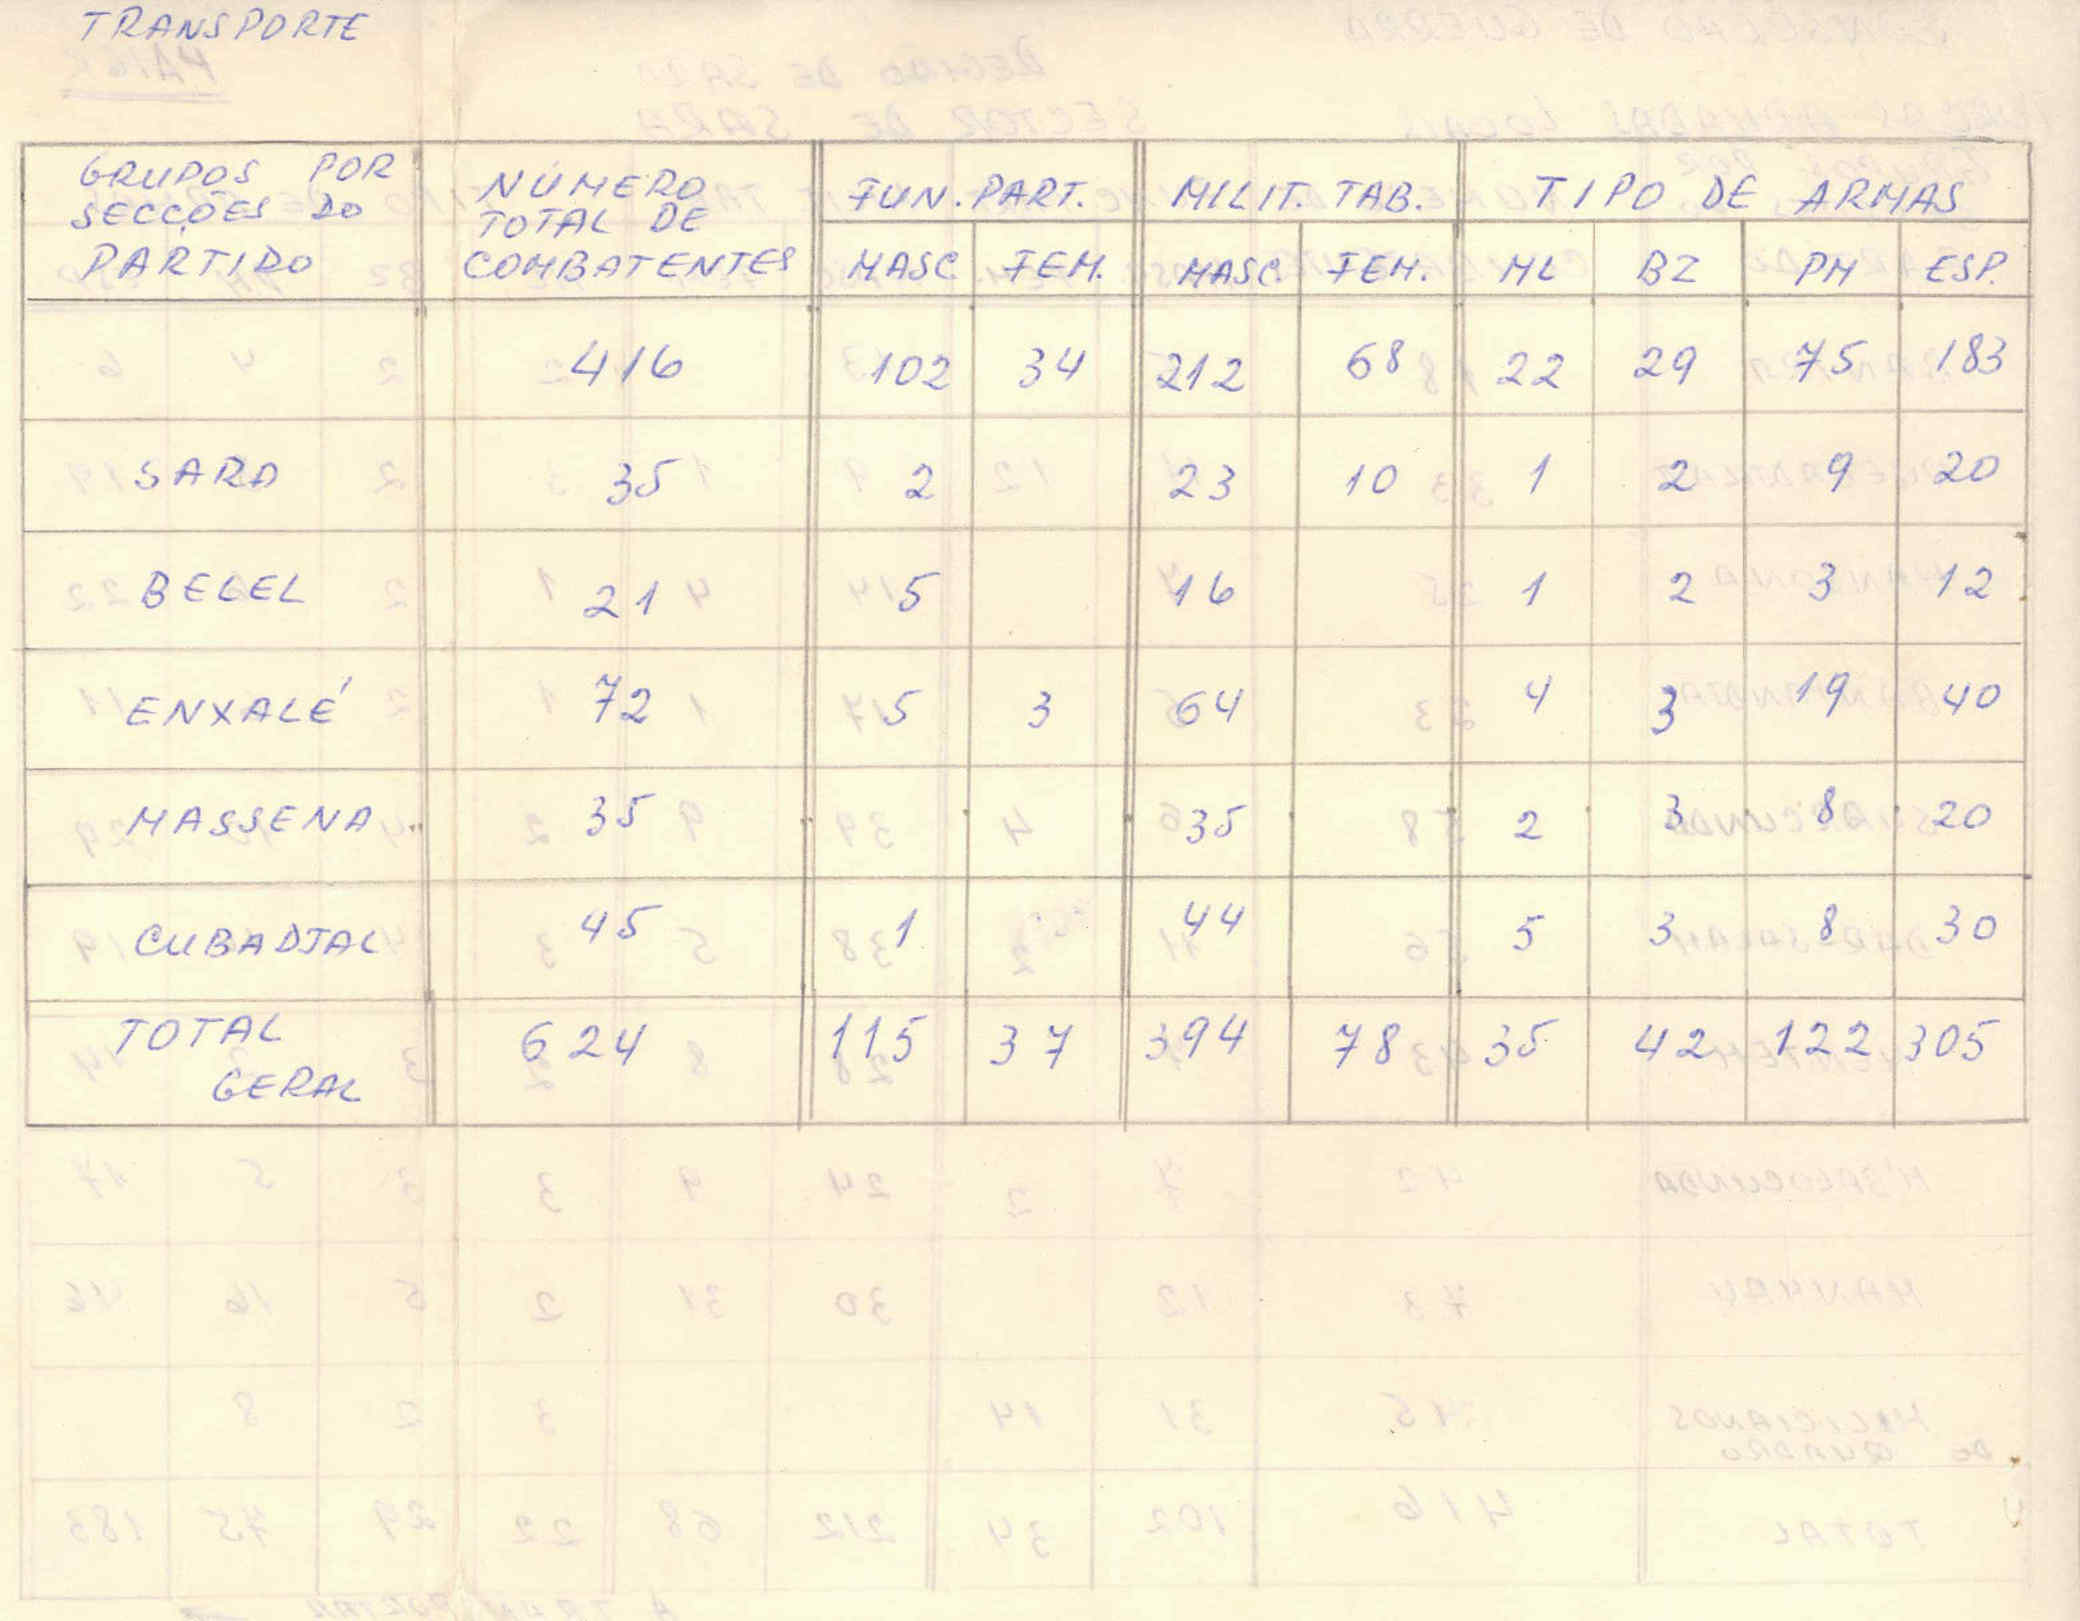 TRANSPORTE
GRUPOS POR SECÇÕES DO PARTIDO | NÚMERO TOTAL DE COMBATENTES | FUN. PART. | MILIT. TAB. | TIPO DE ARMAS
MASC. FEM. MASC. FEM. ML BZ PM ESP.
416 102 34 212 68 22 29 75 183
SARA 35 2 23 10 1 2 9 20
BELEL 21 5 16 1 2 3 12
ENXALÉ 72 5 3 64 4 3 19 40
MASSENA 35 35 2 3 8 20
CUBADJAL 45 1 44 5 3 8 30
TOTAL GERAL 624 115 37 394 78 35 42 122 305